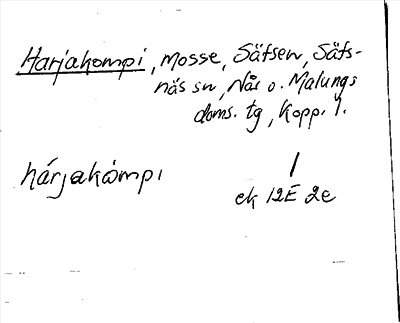 Harjakompi, mosse, Säfsen, Säfs-
näs sn, Nås o. Malungs
doms. tg, Kopp. l.
hárjakòmpi
ek 12E 2e